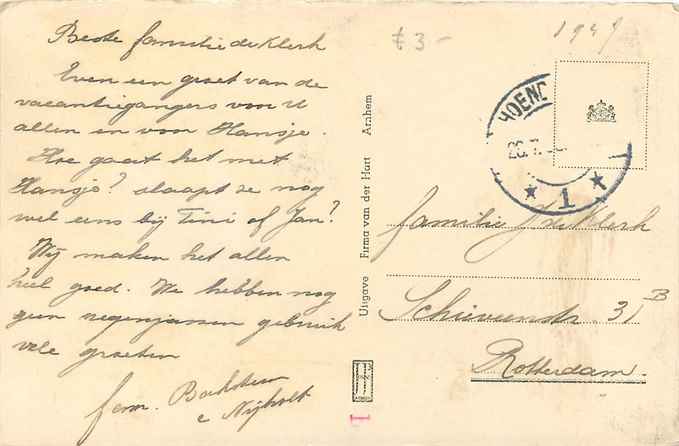 Beste familie de Klerk
Even een groet van de
vacantiegangers voor U
allen en voor Hansje.
Hoe gaat het met
Hansje? slaapt ze nog
wel eens bij Tini of Jan?
Wij maken het allen
heel goed. We hebben nog
geen regenjassen gebruik
vele groeten
fam.
e Nijholt
Uitgave Firma van der Hart Arnhem
£ 3-
1949
HOEND
1
familie de Klerk
31 B
Rotterdam.